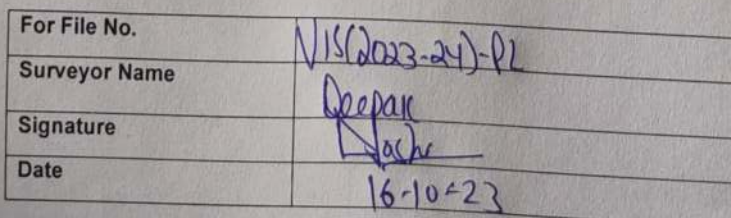 For File No. VIS(2023-24)-PL
Surveyor Name Deepak
Signature Joshi
Date 16-10-23